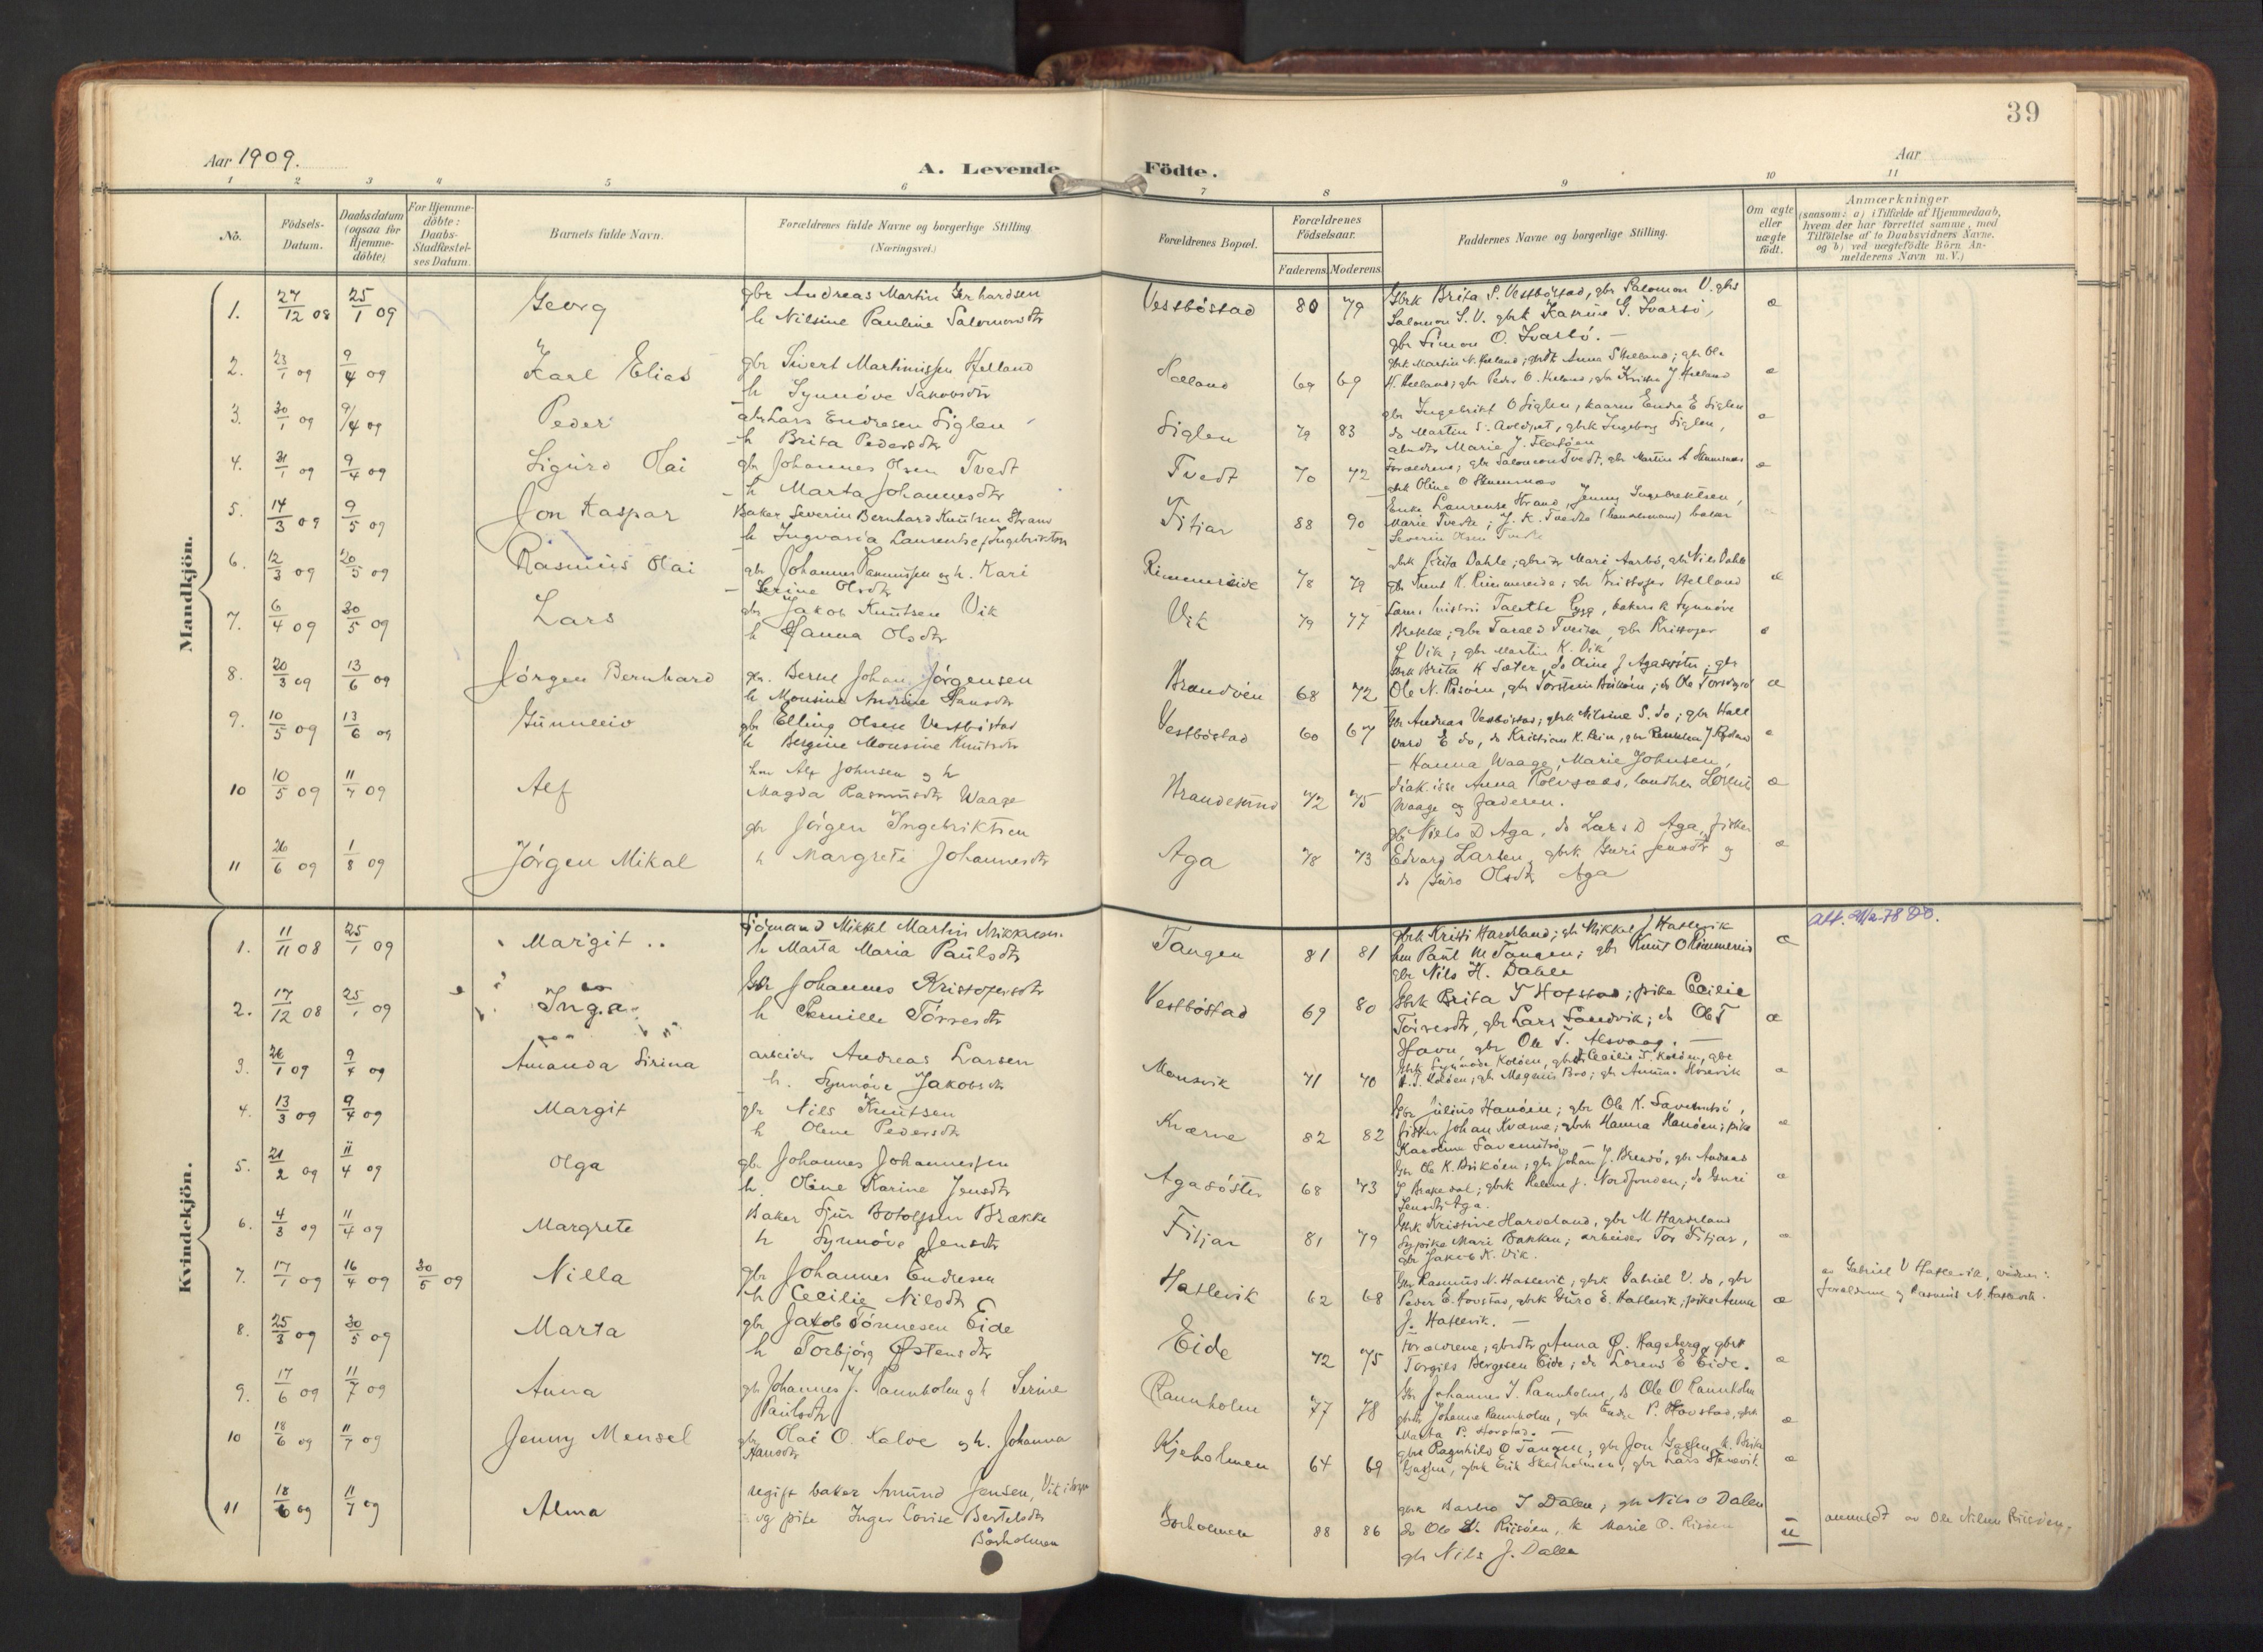 39
Aar 1909.
A. Levende Födte.
Aar
1 2 3 4 5 6 7 8 9 10 11
No.
Födsels-Datum.
Daabsdatum (ogsaa for Hjemme-döbte)
For Hjemme-döbte: Daabs-Stadfæstel-ses Datum.
Barnets fulde Navn.
Forældrenes fulde Navne og borgerlige Stilling. (Næringsvei.)
Forældrenes Bopæl.
Forældrenes Födselsaar.
Faderens. Moderens.
Faddernes Navne og borgerlige Stilling.
Om ægte eller uægte födt.
Anmærkninger
(saasom: a) i Tilfælde af Hjemmedaab,
hvem der har forrettet samme, med
Tilföielse af to Daabsvidners Navne,
og b) ved uægtefödte Börn An-
melderens Navn m. V.)
Mandkjön.
1. 27/12 08 25/1 09 Georg gbr Andreas Martin Gerhardsen Vestböstad 80 79 Gbrk Brita S. Vestböstad, gbr Salomon V. gbs æ
h Nilsine Pauline Salomonsdtr Salomon S. V. gbrk Kasrine G. Ivarsö,
gbr Simon O. Ivarsö. —
2. 23/1 09 9/4 09 Karl Elias gbr Sivert Martinussen Helland Helland 69 69 gbrk Martin N. Helland; gbrdt Anna S Helland; gbr Ole æ
h Synnöve Jakobsdtr H. Helland; gbr Peder O. Helland, gbr Krister J Helland
3. 30/1 09 9/4 09 Peder gbr Lars Endresen Siglen Siglen 79 83 gbr Ingebrikt O Siglen, kaarm Endre E Siglen æ
h Brita Pedersdtr do Martin S. gbrk Ingeborg Siglen,
gbrdtr Marie J.
4. 31/1 09 9/4 09 Sigurd Olai gbr Johannes Olsen Tvedt Tvedt 70 72 Forældrene; gbr Salomon Tvedt, gbr Martin A æ
h Marta Johannesdtr gbrk Oline O
5. 14/3 09 9/5 09 Jon Kaspar Baker Severin Bernhard Knutsen Strand Fitjar 88 90 Enke Laurense Strand, Jenny Ingebrektsen,
h Ingvarda Laurentse Ingebriktsen Marie Tvedte; J. K. Tvedte (handelsmand) baker
Severin Olsen Tvedte
6. 12/3 09 20/5 09 Rasmus Olai gbr Johannes Rasmussen og h. Kari Rimmereide 78 79 gbrk Brita Dahle; gbrdtr Mari Aarbö, gbr Nils Dahle æ
Serine Olsdtr gbr Knut K. Rimmereide; gbr Kristofer Helland
7. 6/4 09 30/5 09 Lars gbr Jakob Knutsen Vik Vik 79 77 Tomine Bygg, bakerk Synnöve æ
h Hanna Olsdtr Brekke; gbr Tarald Tveita, gbr Kristofer
L Vik; gbr Martin K. Vik
8. 20/3 09 13/6 09 Jörgen Bernhard gbr. Bertel Johan Jörgensen Brandöen 68 72 gbrk Brita H Sæter, do Oline J Agasöster; gbr æ
h Monsine Andrine Hansdtr Ole N. Risöen, gbr Torstein Briköen; do Ole
9. 10/5 09 13/6 09 Gunnleiv gbr Elling Olsen Vestböstad Vestböstad 60 67 Gbr Andreas Vestböstad; gbrk Nilsine S. do; gbr Hall æ
h Bergine Monsine Knutsdtr vard E do, do Kristian K.
10 10/5 09 11/7 09 Alf hm Alf Johnsen og h Brandesund 72 75 Hanna Waage, Marie Johnsen, æ
Magda Rasmusdtr Waage diak.isse Anna Rolvsnes, landhm Lorents
Waage og faderen.
11 26/6 09 1/8 09 Jörgen Mikal gbr Jörgen Ingebriktsen Aga 78 73 gbr Niels D Aga, do Lars D Aga, fisker æ
h Margrete Johannesdtr Edvard Larsen, gbrk Guri Jensdtr og
do Guro Olsdtr Aga
Kvindekjön.
1. 11/11 08 25/1 09 Margit Sjömand Mikkel Martin Mikkelsen. Tangen 81 81 gbrk Kristi Hardland; gbr Mikkel J Hatlevik æ
h Marta Maria Paulsdtr hm Paul M Tangen; gbr Knut O Rimmereid
gbr Nils H. Dahle
Att. 21/2-78
2. 17/12 08 25/1 09 Inga Gbr Johannes Kristofersdtr Vestböstad 69 80 Gbrk Brita T Hofstad; pike Cecilie æ
h Pernille Törresdtr Törresdtr, gbr Lars Sandvik; do Ole T
Havn, gbr Ole T. Alsvaag. —
3. 26/1 09 9/4 09 Amanda Sirina arbeider Andreas Larsen Mansvik 71 70 Gbrk Synnöve Koløen, gbrdtr Cecilie T. Kolöen, gbr æ
h. Synnöve Jakobsdtr A. T. Kolöen; gbr Magnus Bro; gbr
4. 13/3 09 9/4 09 Margit gbr Nils Knutsen Kværne 82 82 Gbr Julius Hanöen; gbr Ole K. æ
h Olene Pedersdtr fisker Johan Kværne; gbrk Hanna Hanöen; pike
Karolina
5. 21/2 09 11/4 09 Olga gbr Johannes Johannessen Agasöster 68 73 Gbr Ole K. Briköen; gbr Johan J. gbr Andreas æ
h. Oline Karine Jensdtr gbrk Helene J. Nordfonden; do Guri
Jensdtr Aga.
6. 4/3 09 11/4 09 Margrete Baker Sjur Botolfsen Brække Fitjar 81 79 Gbrk Kristine Hardeland, gbr M Hardeland æ
h Synnöve Jensdtr Sypike Mari Bakken; arbeider Tor Fitjar,
gbr Jakob K. Vik.
7. 17/1 09 16/4 09 30/5 09 Nilla gbr Johannes Endresen Hatlevik 62 68 Gbr Rasmus N. Hatlevik; gbrk Gabriel V. do, gbr æ
h Cecilie Nilsdtr Peder E. Hovstad, gbrk Guro E. Hatlevik; pike Anna
J. Hatlevik. —
av Gabriel V Hatlevik, vidner:
forældrene og Rasmus N. Hatlevik.
8. 25/3 09 30/5 09 Marta gbr Jakob Tönnesen Eide Eide 72 75 Forældrene; gbrdtr Anna Ø. Hageberg, gbrk æ
h Torbjörg Østensdtr Torgils Bergesen Eide; do Lorens E Eide.
9. 17/6 09 11/7 09 Anna gbr Johannes J. Rannholm og h Serine Rannholm 77 78 Gbr Johannes J. Rannholm, do Ole O Rannholm æ
Paulsdtr gbrdtr Johanne Rannholm, gbr Endre P. Hovstad, gbrk
Marta P. Hovstad. —
10 18/6 09 11/7 09 Jenny Mensel gbr Olai O. Kalve og h. Johanna Kjeholmen 64 69 gbrk Ragnhild O Tangen; gbr Jon Gassen, k. Brita æ
Hansdtr Gassen, gbrk Erik Skatholmen, gbr Lars
11 18/6 09 11/7 09 Alma ugift baker Amund Jensen, Vik i Bremnes Borholmen 88 86 gbrk Barbro J Dalen; gbr Nils O Dalen u
og pike Inger Lovise Bertelsdtr do Ole N. Riisöen, k Marie O. Risöen
Börholmen gbr Nils J. Dalen
anmeldt av Ole Nilsen Riisöen,